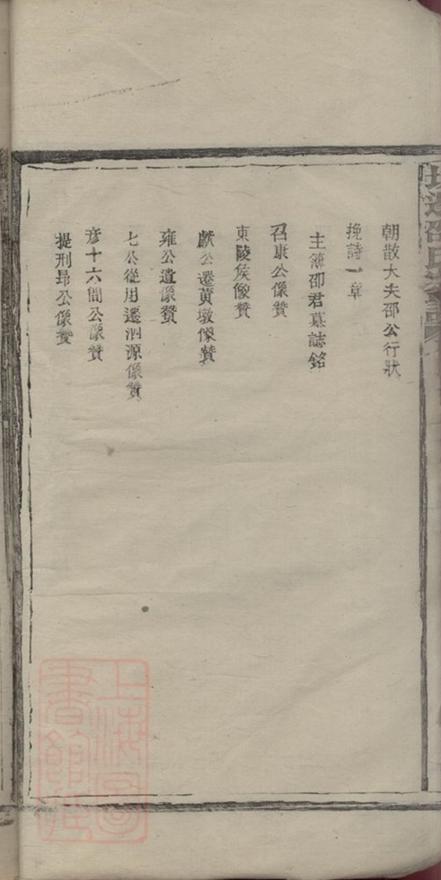 朝散大夫邵公行狀
挽詩一章
主簿邵君墓誌銘
召康公像贊
東陵侯像贊
獻公遷黄墩像贊
雍公遺像贊
七公從用遷泗源像贊
彥十六間公像贊
提刑昻公像贊
上海圖書館藏